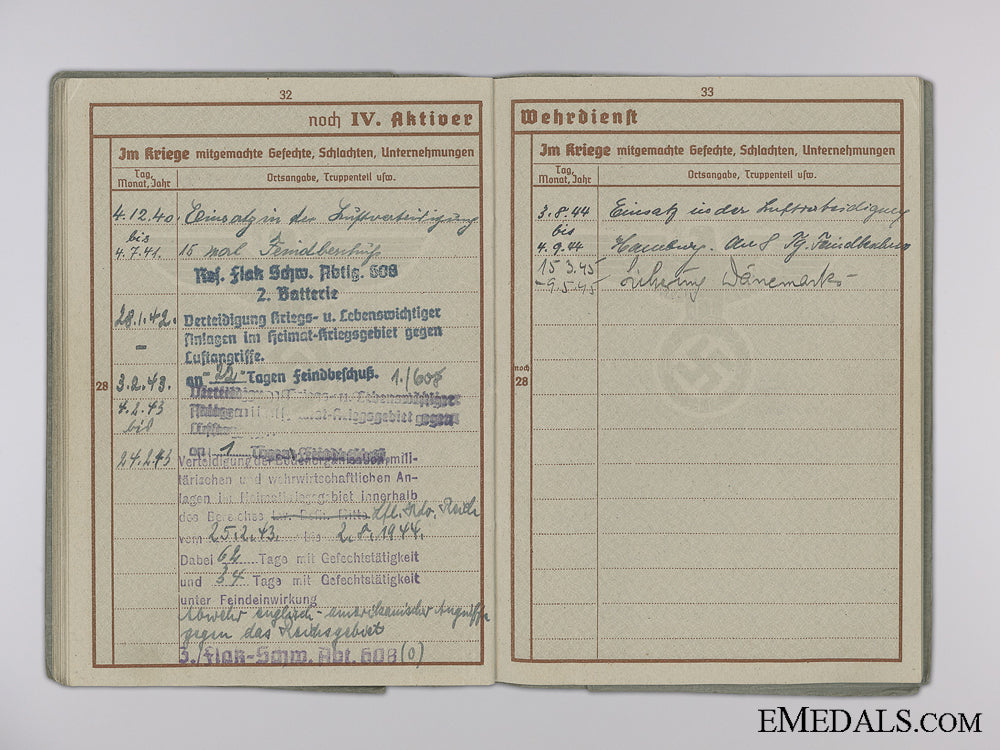 32
noch IV. Aktiver
Im Kriege mitgemachte Gefechte, Schlachten, Unternehmungen
Tag, Monat, Jahr
Ortsangabe, Truppenteil usw.
28
4.12.40. Einsatz in der Luftverteidigung
bis
4.7.41. 15 mal Feindbeschuß
Res. Flak Schw. Abtlg. 608
2. Batterie
28.1.42. Verteidigung Kriegs- u. Lebenswichtiger
– Anlagen im Heimat-Kriegsgebiet gegen
Luftangriffe.
3.2.43. an "22" Tagen Feindbeschuß. 1./608
Verteidigung Kriegs- u. Lebenswichtiger
4.2.43 Anlagen im Heimat-Kriegsgebiet gegen
bis
24.2.43 an 1 Tagen
Verteidigung der Bodenorganisation, mili-
tärischen und wehrwirtschaftlichen An-
lagen im Heimatkriegsgebiet innerhalb
des Bereiches Lw. Befh. Mitte Lfl. Kdo. Reich
vom 25.2.43. bis 2.8.1944.
Dabei 62 Tage mit Gefechtstätigkeit
und 34 Tage mit Gefechtstätigkeit
unter Feindeinwirkung
Abwehr englisch-amerikanischer Angriffe
gegen das Reichsgebiet
3. Flak-Schw. Abt. 608 (o)
33
Wehrdienst
Im Kriege mitgemachte Gefechte, Schlachten, Unternehmungen
Tag, Monat, Jahr
Ortsangabe, Truppenteil usw.
noch 28
3.8.44 Einsatz in der Luftverteidigung
bis
4.9.44 Hamburg. An 8 Tg.
15.3.45 Sicherung Dänemarks
-9.5.45
EMEDALS.COM